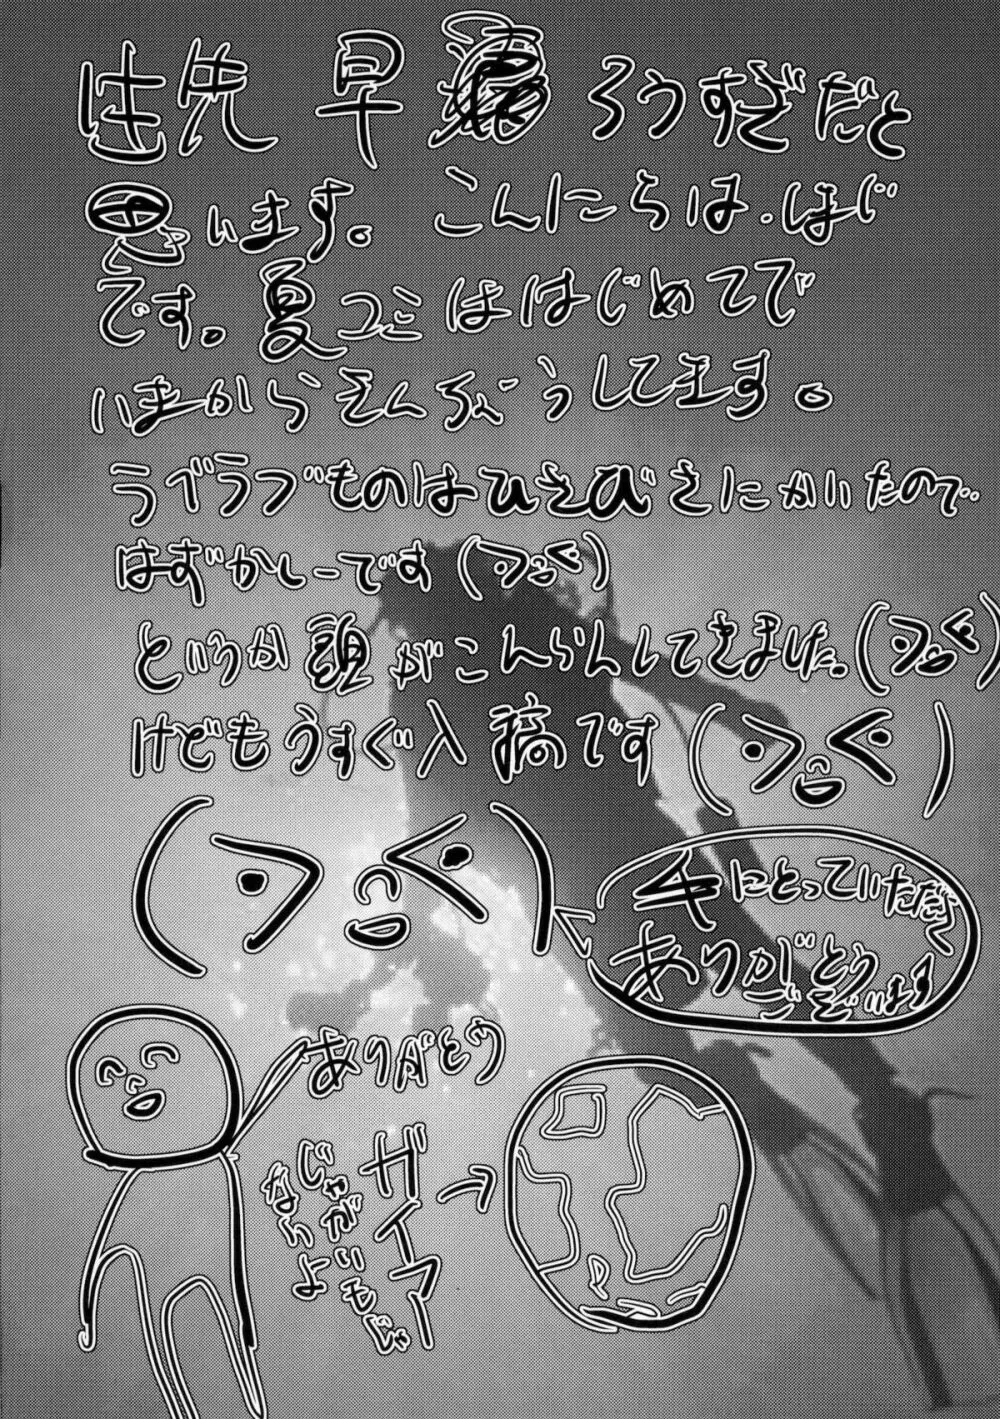 先 早 ろうすぎだと
思います。 こんにちは.ほじ
です。夏コミははじめてで
いまからぞんぶうしてます。
ラブラブものはひさびさにかいたので..
はずかしーです( フ く )
というか頭がこんらんしてきました。( フ く )
けどもうすぐ入稿です ( フ く )
( フ く )
手にとっていただく
ありがとう
ございます
ありがとう
ガイアー
じゃがいもじゃ
ないよ